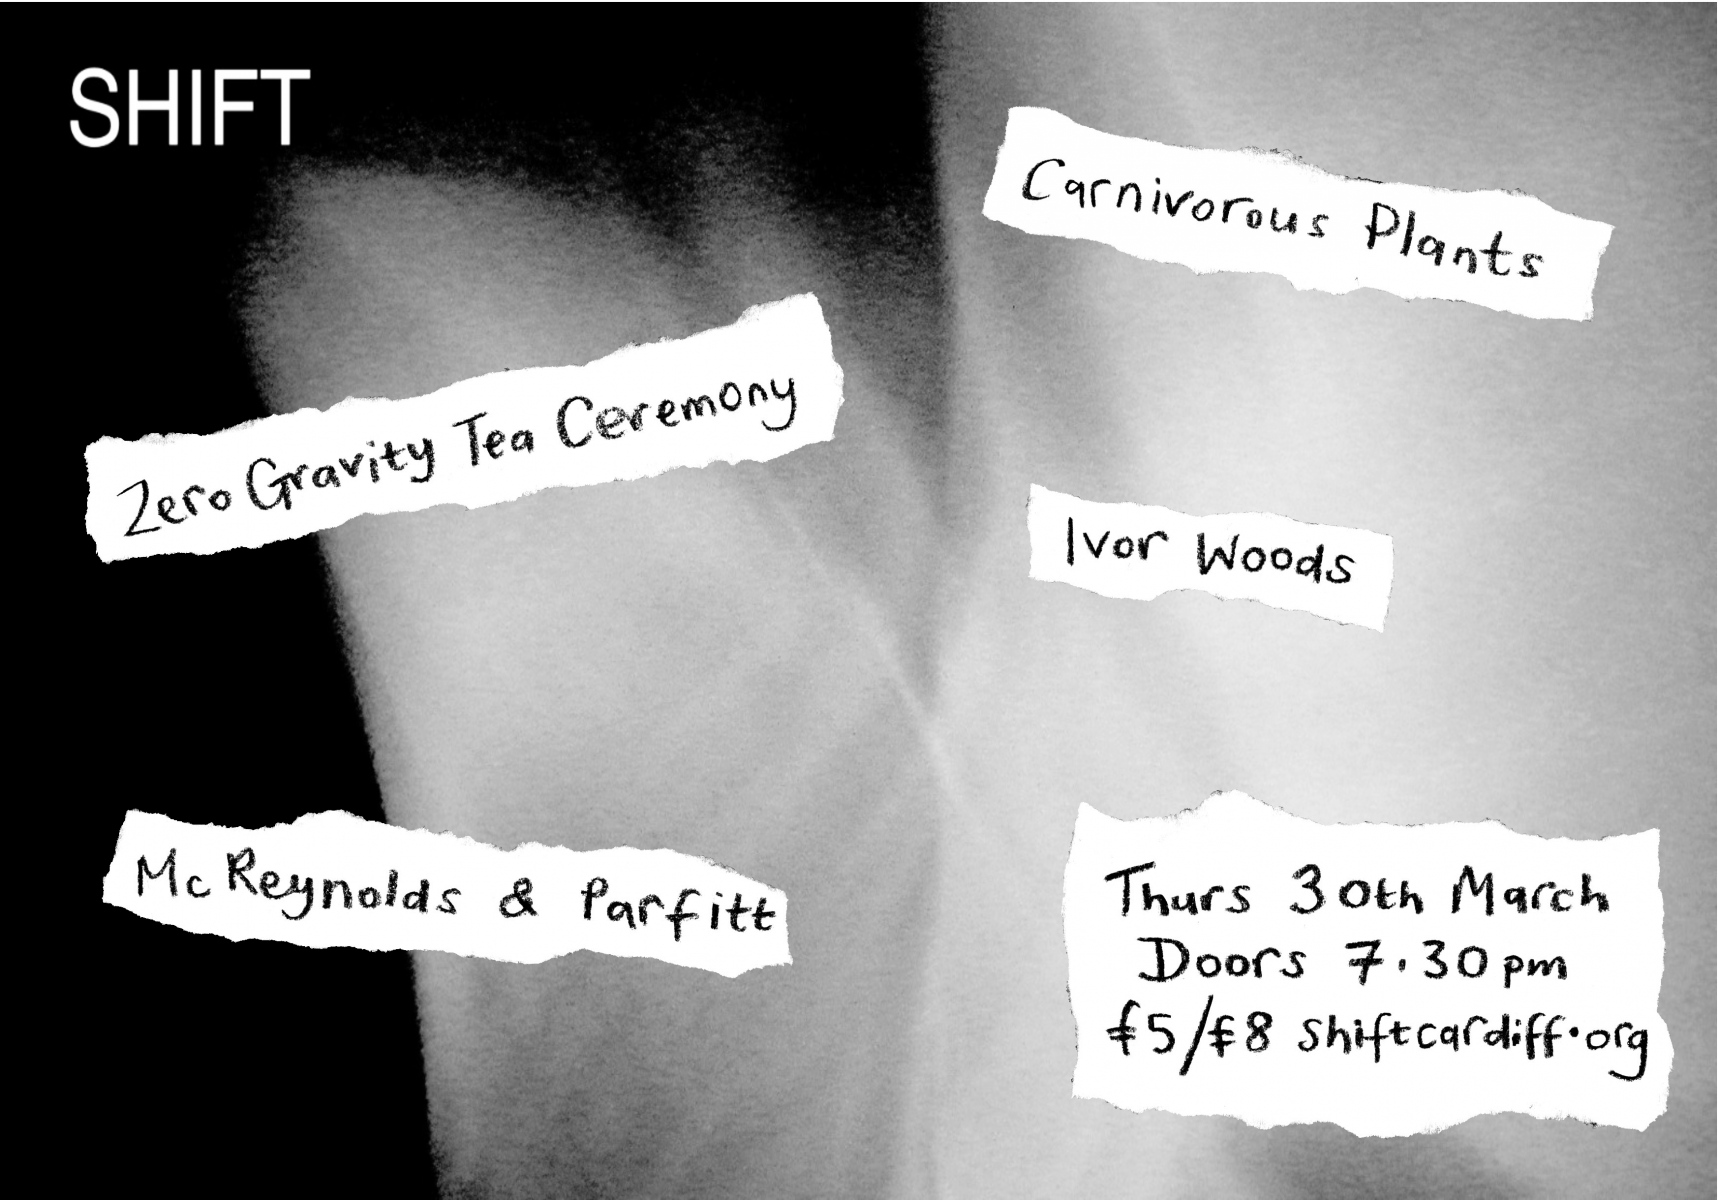 SHIFT
Carnivorous Plants
Zero Gravity Tea Ceremony
Ivor Woods
McReynolds & Parfitt
Thurs 30th March
Doors 7.30pm
£5/£8 shiftcardiff.org